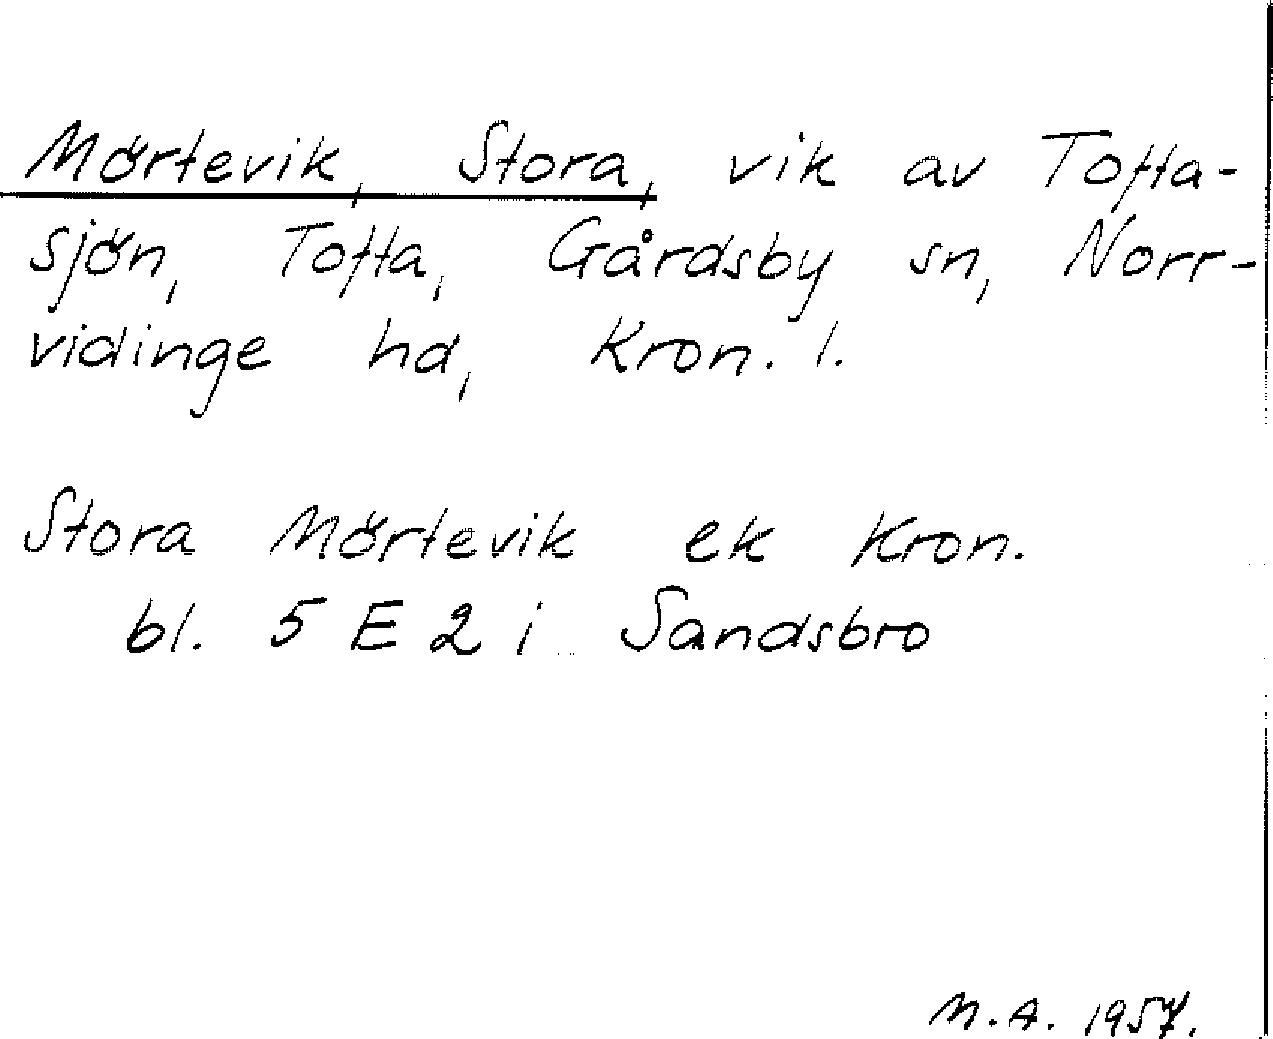 Mörtevik, Stora, vik av Tofta-
sjön, Tofta, Gårdsby sn, Norr-
vidinge hd, Kron. l.
Stora Mörtevik ek Kron.
bl. 5 E 2 i Sandsbro
M.A. 1957.